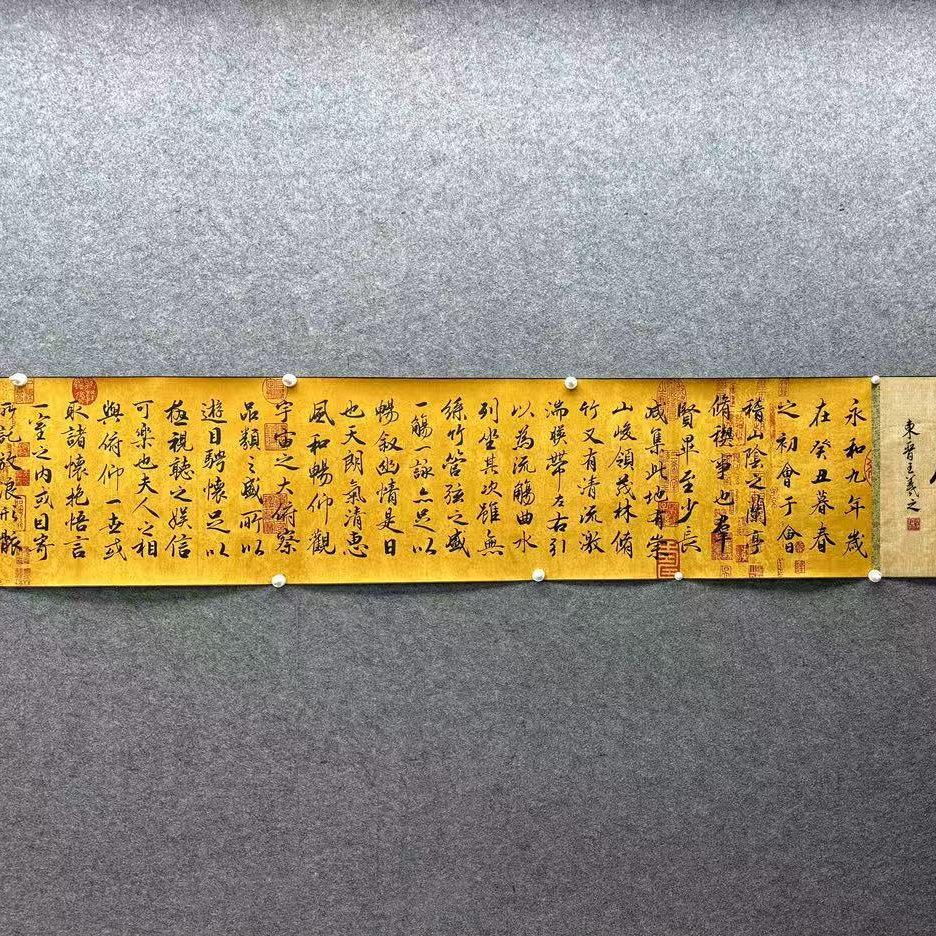 東晉王羲之
永和九年歲
在癸丑暮春
之初會于會
稽山陰之蘭亭
脩禊事也羣
賢畢至少長
咸集此地有崇
山峻領茂林脩
竹又有清流激
湍暎帶左右引
以為流觴曲水
列坐其次雖無
絲竹管弦之盛
一觴一詠亦足以
暢敘幽情是日
也天朗氣清惠
風和暢仰觀
宇宙之大俯察
品類之盛所以
遊目騁懷足以
極視聽之娛信
可樂也夫人之相
與俯仰一世或
取諸懷抱悟言
一室之內或因寄
所託放浪形骸